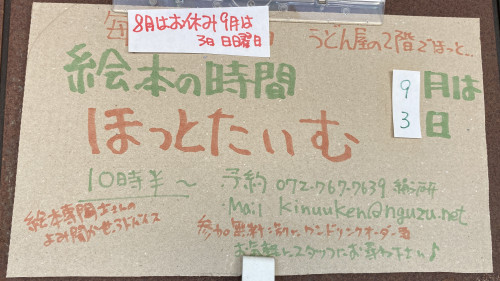 8月はお休み9月は
3日 日曜日
毎
うどん屋の2階でほっと…
絵本の時間
9月は
3日
ほっとたいむ
10時半〜
予約 072-767-7639
Mail kinuuken@nguzu.net
絵本専門士さんの
よみ聞かせ、アドバイス
参加無料 ワンドリンクオーダー
お気軽にスタッフにお尋ね下さい♪